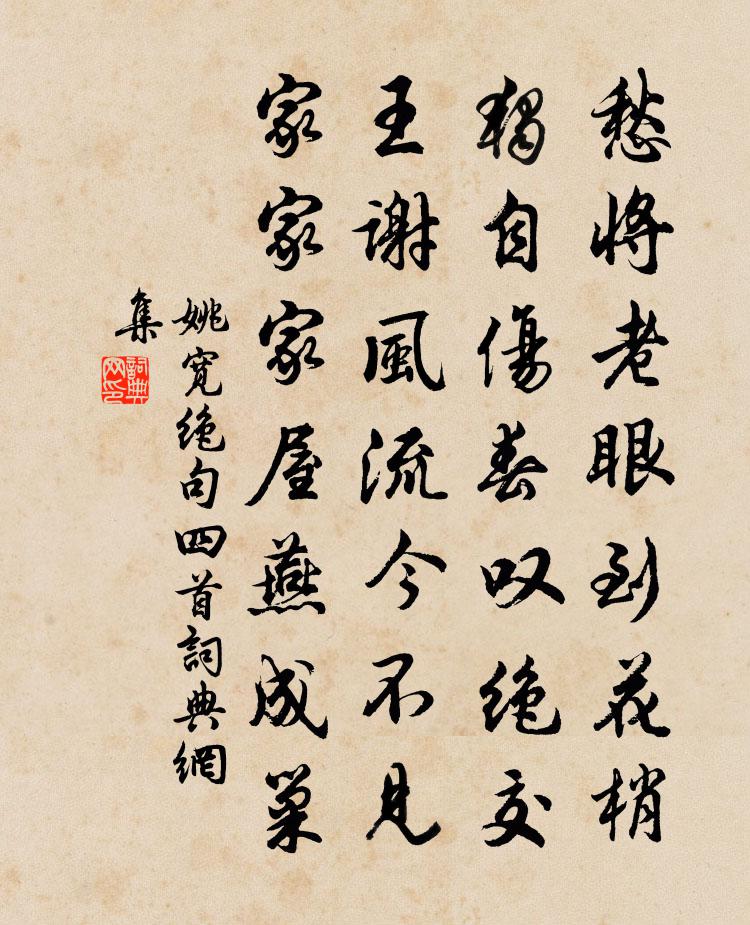 愁將老眼到花梢
獨自傷春叹絶交
王謝風流今不見
家家家屋燕成巢
姚寬絶句四首詞典網
集
詞典
网印